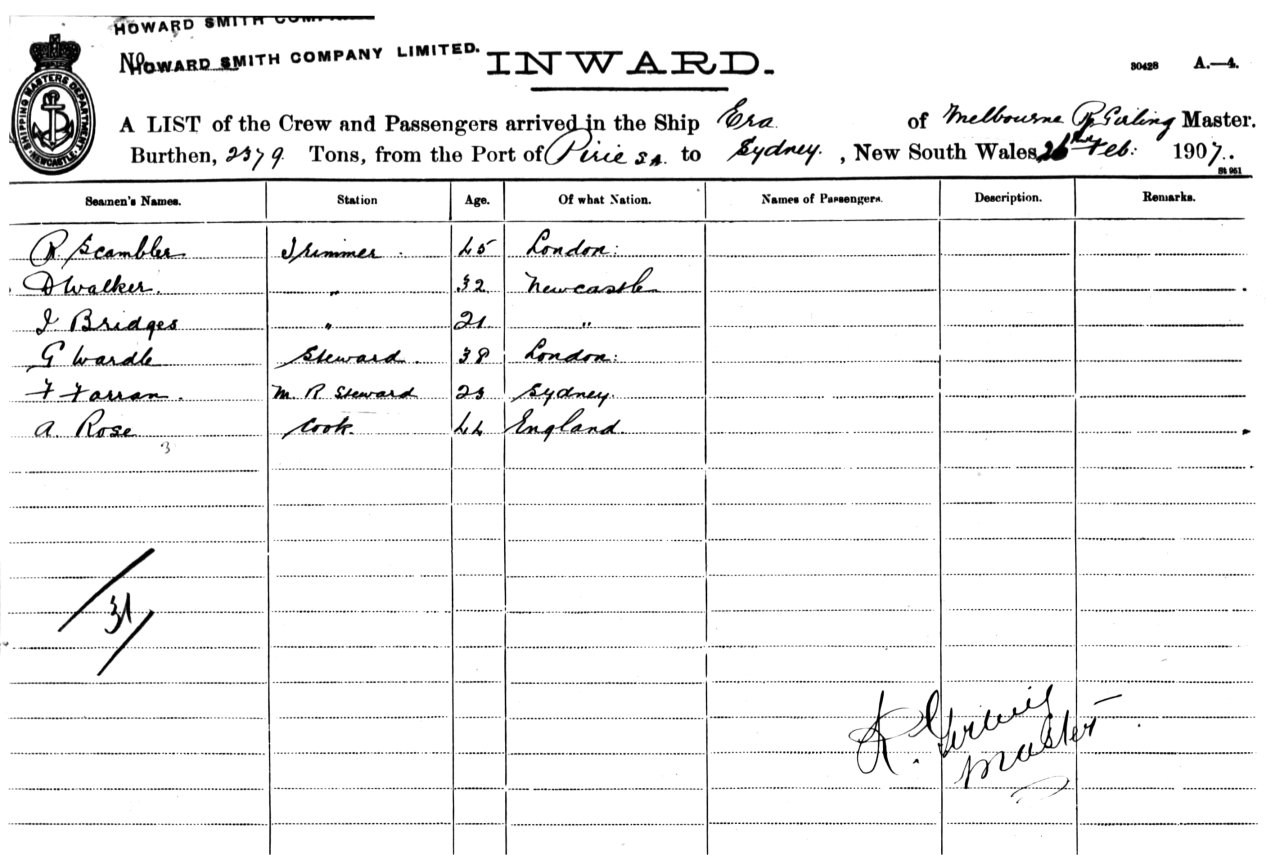 HOWARD SMITH
No. HOWARD SMITH COMPANY LIMITED.
INWARD.
30428 A.—4.
SHIPPING MASTERS DEPARTMENT NEWCASTLE
A LIST of the Crew and Passengers arrived in the Ship Era of Melbourne R Girling Master.
Burthen, 2379 Tons, from the Port of Pirie S.A. to Sydney. , New South Wales, 26th Feb: 1907.
St 961
Seamen's Names. Station Age. Of what Nation. Names of Passengers. Description. Remarks.
R. Scambler Trimmer. 45 London:
D Walker. " 32 Newcastle
J Bridges " 21 "
G Wardle Steward. 38 London:
F Farran. M. R. Steward 23 Sydney.
A. Rose Cook. 44 England.
3
31
R. Girling
Master